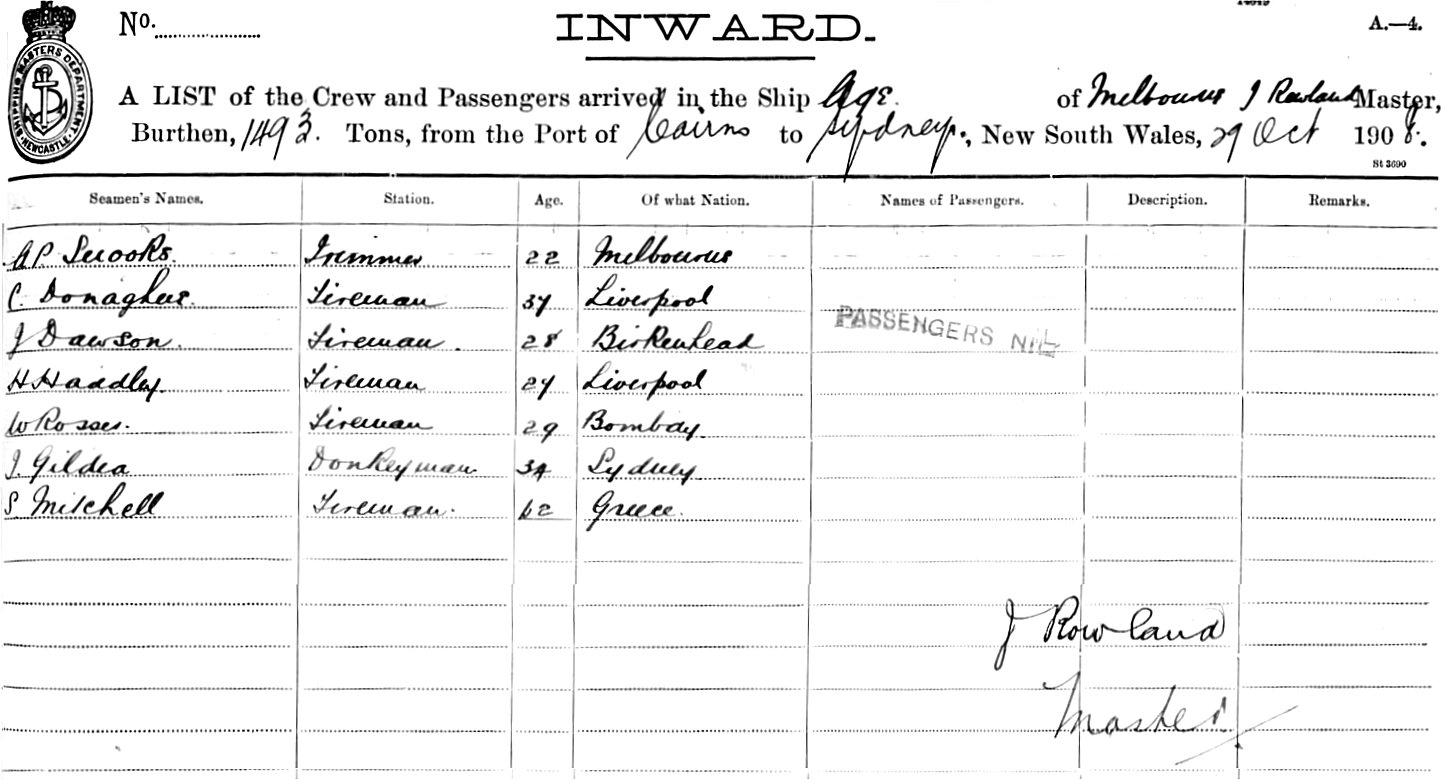 No.
INWARD.
A.—4.
SHIPPING MASTERS DEPARTMENT NEWCASTLE
A LIST of the Crew and Passengers arrived in the Ship Age. of Melbourne J Rowland Master,
Burthen, 1493. Tons, from the Port of Cairns to Sydney, New South Wales, 29 Oct 1908.
St 3690
Seamen's Names. Station. Age. Of what Nation. Names of Passengers. Description. Remarks.
AP Snooks Trimmer 22 Melbourne
C. Donaghue. Fireman 37 Liverpool
J Dawson. Fireman. 28 Birkenhead
PASSENGERS NIL
H Haddley. Fireman 27 Liverpool
W Rosser. Fireman 29 Bombay
J. Gildea Donkeyman 34 Sydney
S Mitchell Fireman. 62 Greece.
J Rowland
Master